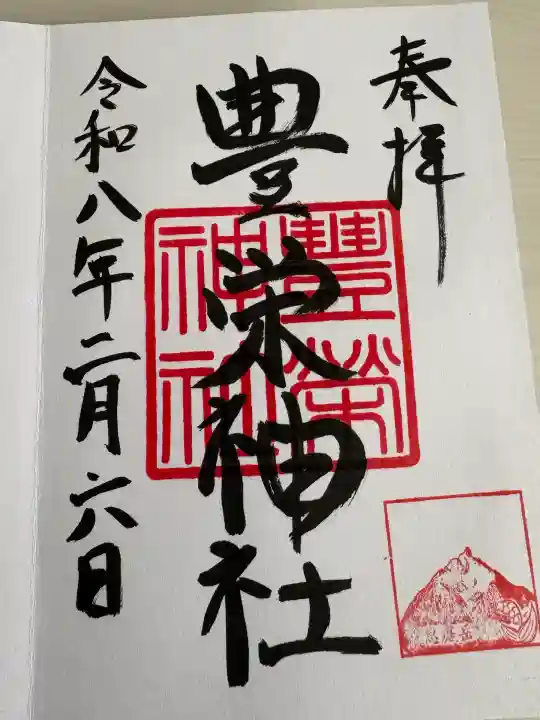 奉拝
豊栄神社
豐榮神社
令和八年二月六日